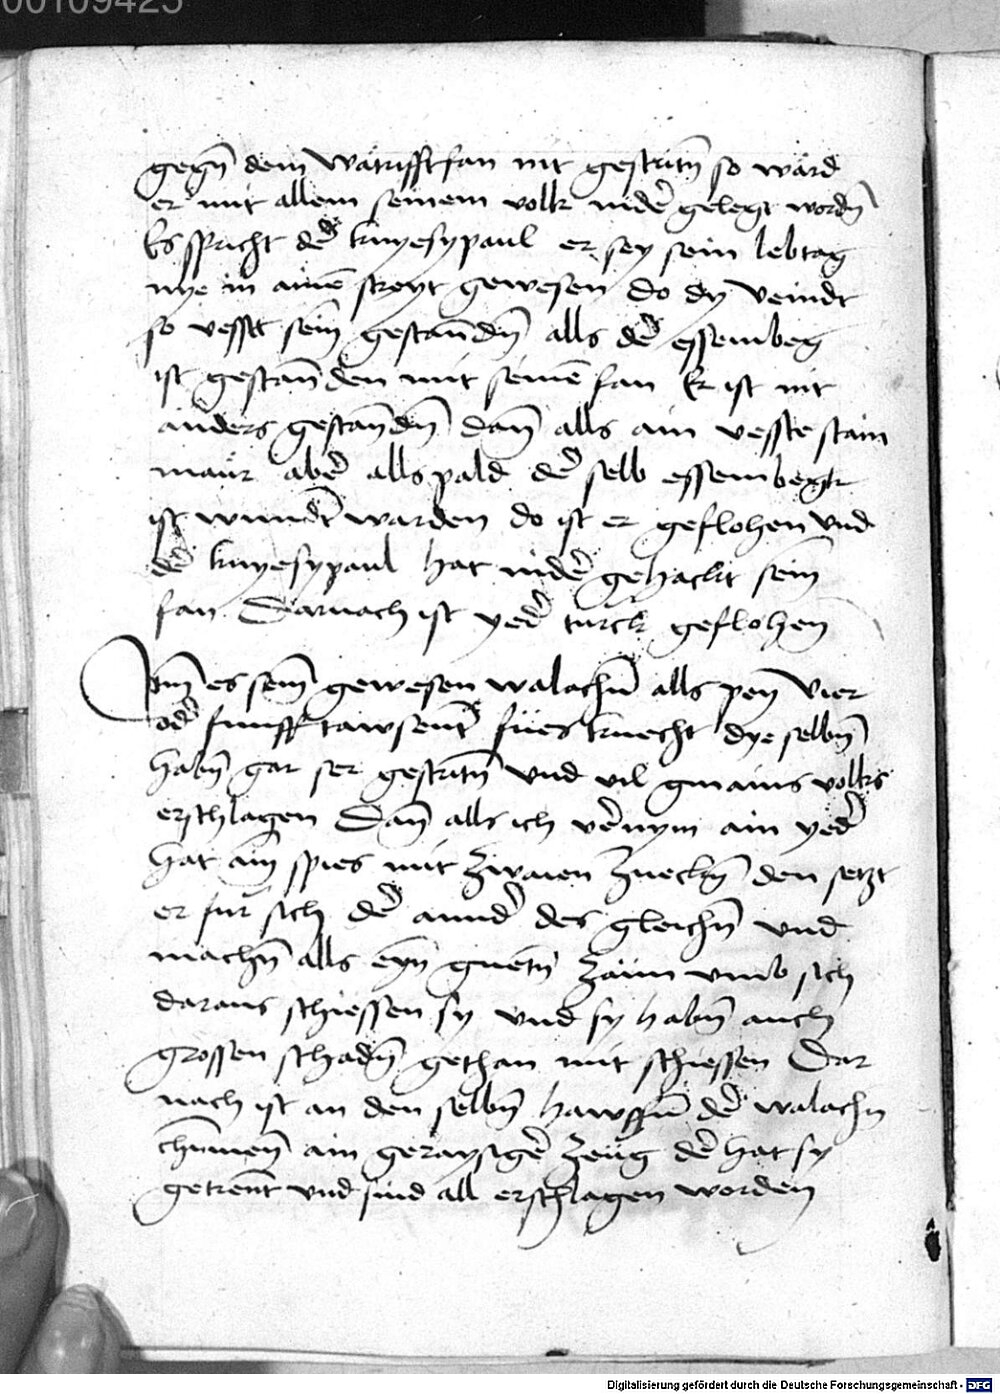 00109425
gegn̄ dem Watrifftfan nit gestritn̄ so ward
er mit allem seinem volk nider̄ gelegt wordn̄
Es spricht der̄ kinyesypaul er sey sein lebtag
nye in ainē streyt gewesen do dy veindt
so vesst sein̄ gestan̄dn̄ alls der̄ essembeg
ist gestan̄den mit seinē fan Er ist nit
anders gestan̄dn̄ dan̄ alls ain vesste stain
maur aber̄ alls pald der̄ selb essembegk
ist wundt̄ warden do ist er geflohen vnd
der̄ kinyesypaul hat nider̄ gehackt sein̄
fan Darnach ist yeder̄ turck geflohen
Itm̄ es sein̄ gewesen walachn̄ alls pey vier
oder̄ funff tawsent̄ fues knecht dye selbn̄
habn̄ gar ser gestritn̄ vnd vil gmains volks
erschlagen Dan̄ alls ich ver̄nym ain yeder̄
hat ain̄ spies mit zwaien zueckn̄ den setzt
er fur sich der̄ annder̄ des gleichn̄ vnd
machn̄ alls eyn̄ guetn̄ zaun vmb sich
daraus schiessen sy vnd sy habn̄ auch
grossen schadn̄ gethan mit schiessen Dar
nach ist an den selbn̄ hawffn̄ der̄ walachn
chūmen̄ ain geraysiger̄ zeug der̄ hat sy
getrent̄ vnd sind all erschlagen worden
Digitalisierung gefördert durch die Deutsche Forschungsgemeinschaft - DFG